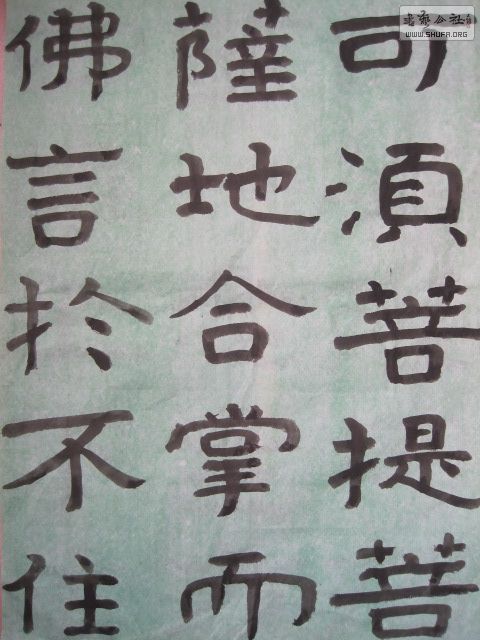 可湏菩提菩
薩地合掌而
佛言於不住
書藝公社
WWW.SHUFA.ORG